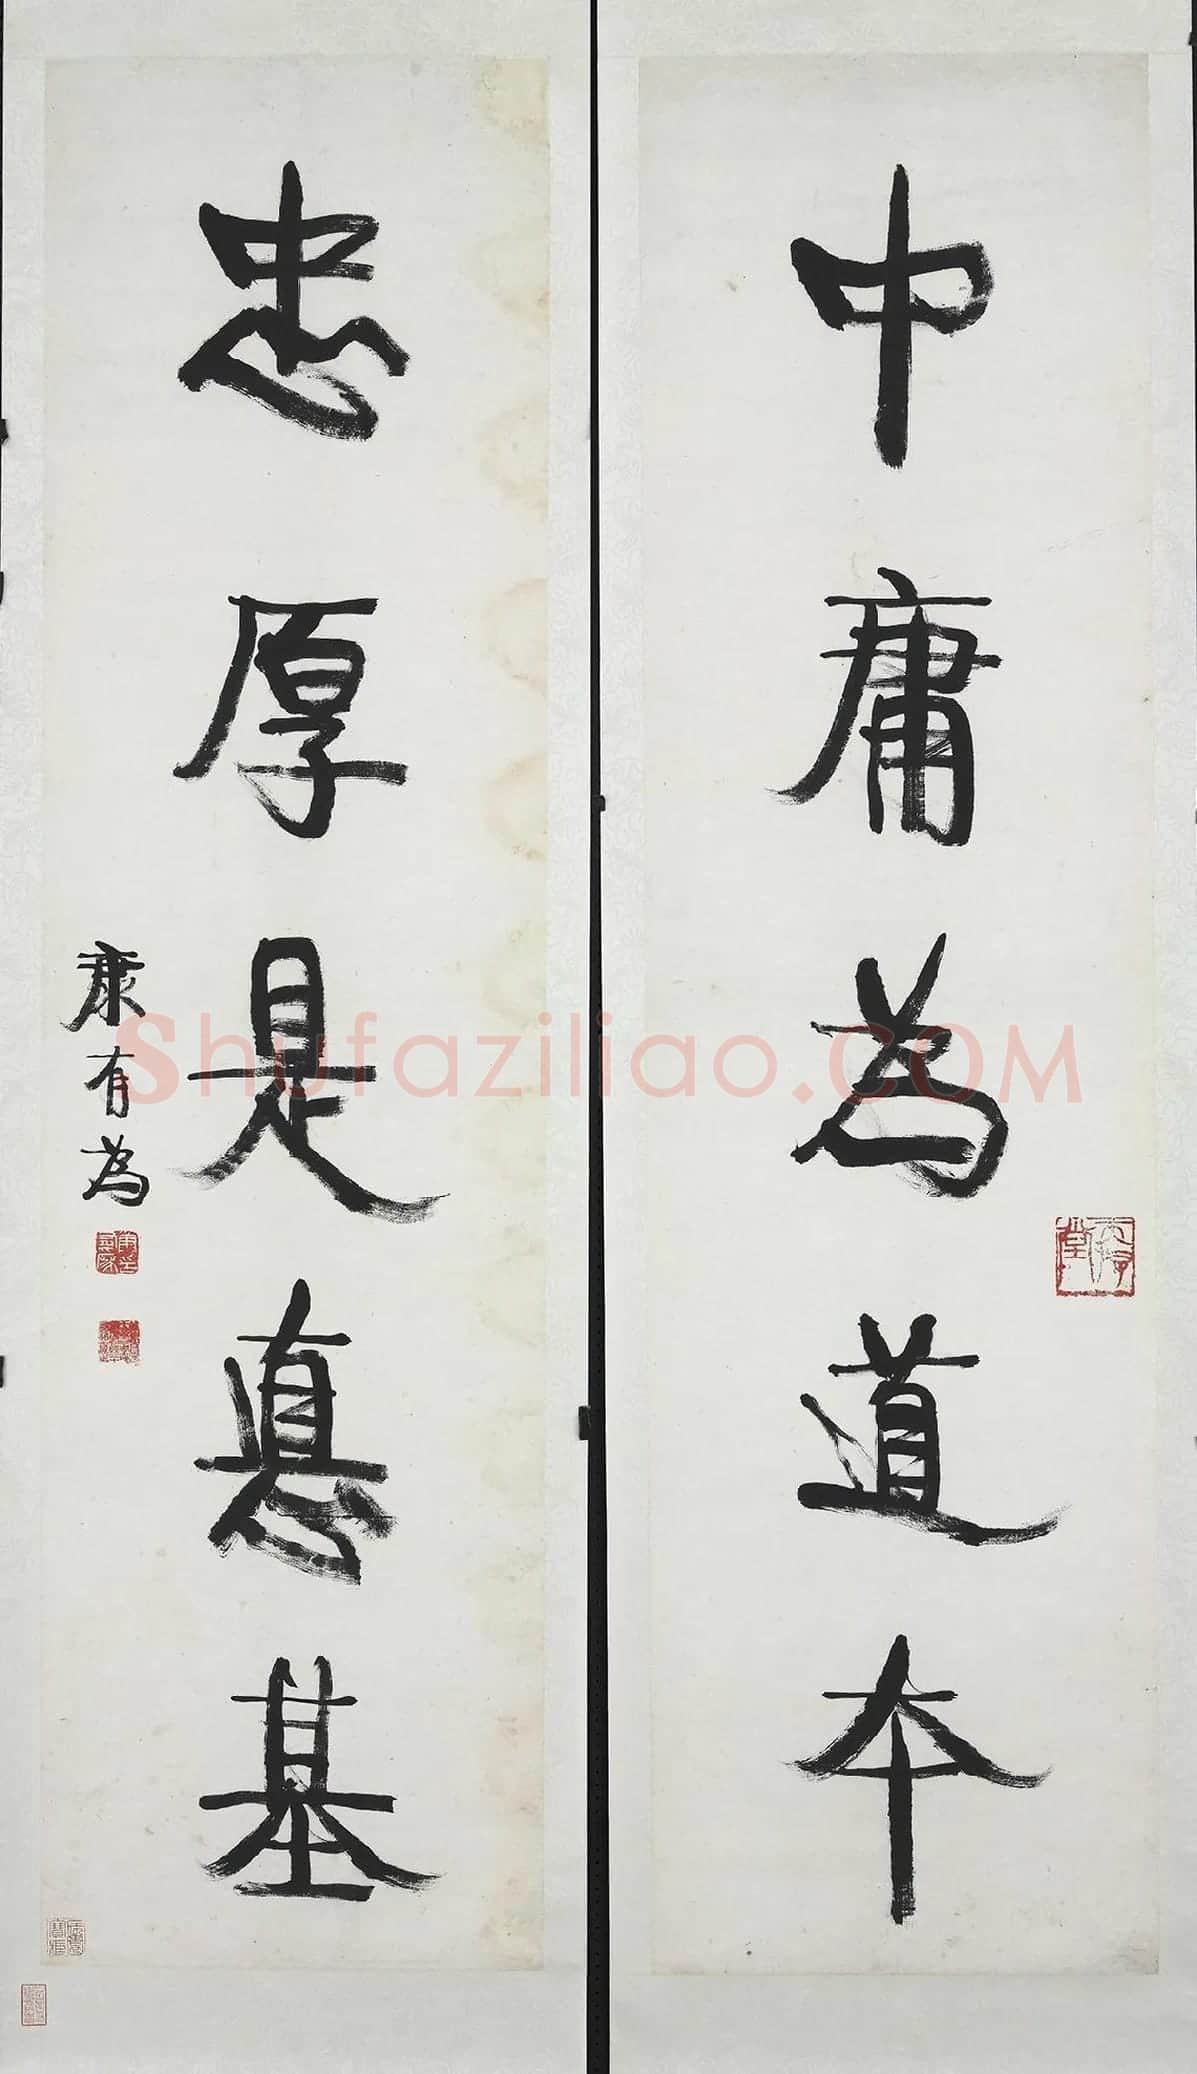 中庸为道本
忠厚是悳基
康有為
Shufaziliao.COM